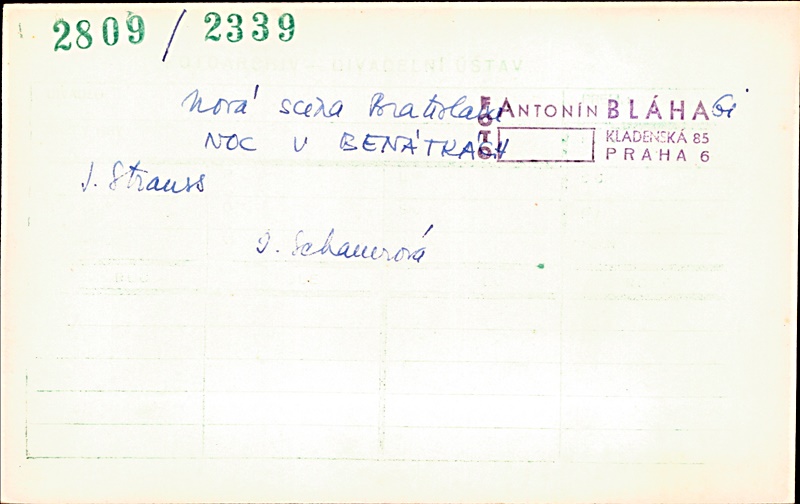 2809 / 2339
FOTOARCHIV - DIVADELNÍ ÚSTAV
Nová scéna Bratislava
NOC V BENÁTKACH
J. Strauss
J. Schauerová
FOTO
ANTONÍN BLÁHA
KLADENSKÁ 85
PRAHA 6